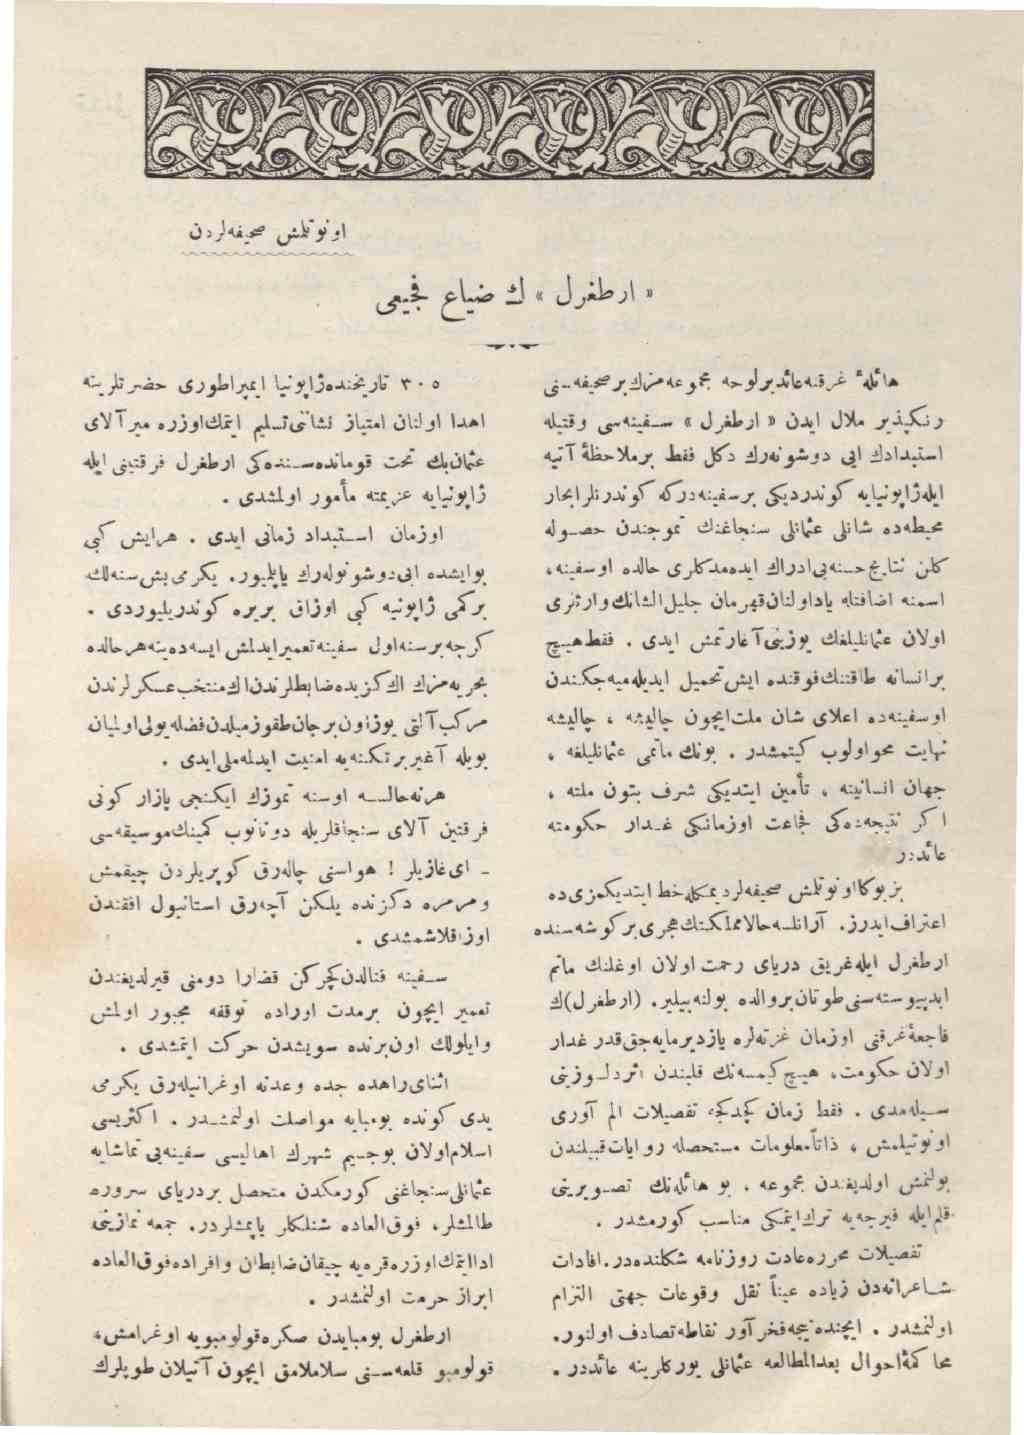 اونوتلمش صحیفه‌لردن
« ارطغرل » ك ضیاع فجیعی
هائله‌ٔ غرقنه عائد بر لوحه مجموعه‌مزك بر صحیفه‌سنی
رنكپذیر ملال ایدن « ارطغرل » سفینه‌سی وقتیله
استبدادك ایی دوشونه‌رك دكل فقط بر ملاحظهٔ آتیه
ایله ژاپونیایه كوندردیكی بر سفینه‌دركه كوندرنلر ابحار
محیطه‌ده شانلی عثمانلی سنجاغنك تموجندن حصوله
كلن نتایج حسنه‌یی ادراك ایده‌مدكلری حالده او سفینه،
اسمنه اضافتله یاد اولنان قهرمان جلیل الشانك وارثلری
اولان عثمانلیلغك یوزینی آغارتمش ایدی . فقط هیچ
بر انسانه طاقتنك فوقنده ایش تحمیل ایدیله‌میه‌جكندن
او سفینه‌ده اعلای شان ملت ایچون چالیشه ، چالیشه
نهایت محو اولوب كیتمشدر . بونك ماتمی عثمانلیلغه ،
جهان انسانیته ، تأمین ایتدیكی شرف بتون ملته ،
اكر نتیجه‌ده‌كی فجاعت اوزمانكی غدار حكومته
عائددر
بز بوكا اونوتلمش صحیفه‌لر دیمكله خط ایتدیكمزی ده
اعتراف ایدرز. آرانلسه حالا مملكتك هجری بر كوشه‌سنده
ارطغرل ایله غریق دریای رحمت اولان اوغلنك ماتم
ابدپیوسته‌سنی طوتان بر والده بولنه بیلیر. (ارطغرل)ك
فاجعهٔ غرقنی اوزمان غزته‌لره یازدیرمایه‌جق قدر غدار
اولان حكومت، هیچ كیمسه‌نك قلبندن اثر دلسوزینی
سیله‌مدی . فقط زمان كچدكجه تفصیلات الم آوری
اونوتیلمش ، ذاتاً معلومات مستحصله روایات قبیلندن
بولنمش اولدیغندن مجموعه ، بو هائله‌نك تصویرینی
قلم ایله فیرچه‌یه ترك ایتمكی مناسب كورمشدر .
تفصیلات محرره عادت روزنامه شكلنده‌در. افادات
شاعرانه‌دن زیاده عیناً نقل وقوعات جهتی التزام
اولنمشدر . ایچنده نیجه فخرآور نقاطه تصادف اولنور.
محاكمهٔ احوال بعدالمطالعه عثمانلی یوركلرینه عائددر .
٣٠٥ تاریخنده ژاپونیا ایمپراطوری حضرتلرینه
اهدا اولنان امتیاز نشاننی تسلیم ایتمك اوزره میرآلای
عثمان بك تحت قوماندەسنده‌كی ارطغرل فرقتینی ایله
ژاپونیایه عزیمته مأمور اولمشدی .
اوزمان استبداد زمانی ایدی . هر ایش كبی
بو ایشده ایی دوشونوله‌رك یاپلمیور. یكرمی بش سنه‌لك
بر كمی ژاپونیه كبی اوزاق بر یره كوندریلیوردی .
كرچه بر سنه اول سفینه تعمیر ایدلمش ایسه‌ده ینه هر حالده
بحریه‌مزك اك كزیده ضابطلرندن اك منتخب عسكرلرندن
مركب آلتی یوز اون بر جان طقوز میلدن فضله یولی اولمیان
بویله آغیر بر تكنه‌یه امنیت ایدلمه‌ملی ایدی .
هر نه حالسه او سنه تموزك ایكنجی پازار كونی
فرقتین آلای سنجاقلریله دونانوب كمینك موسیقه‌سی
ـ ای غازیلر ! هواسنی چاله‌رق كوپریلردن چیقمش
ومرمره دكزنده یلكن آچه‌رق استانبول افقندن
اوزاقلاشمشدی .
سفینه قنالدن كچركن قضارا دومنی قیرلدیغندن
تعمیر ایچون بر مدت اوراده توقفه مجبور اولمش
وایلولك اون برنده سویشدن حركت ایتمشدی .
اثنای راهده جده وعدنه اوغرانیله‌رق یكرمی
یدی كونده بومبایه مواصلت اولنمشدر . اكثریسی
اسلام اولان بو جسیم شهرك اهالیسی سفینه‌یی تماشایه
عثمانلی سنجاغنی كورمكدن متحصل بر دریای سروره
طالمشلر، فوق العاده شنلكلر یاپمشلردر. جمعه نمازینی
ادا ایتمك اوزره قره‌یه چیقان ضابطان وافراده فوق العاده
ابراز حرمت اولنمشدر .
ارطغرل بومبایدن صكره قولومبویه اوغرامش،
قولومبو قلعه‌سنی سلاملامق ایچون آتیلان طوپلرك